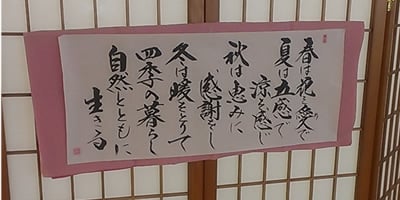 春は花を愛で
夏は五感で
涼を感じ
秋は恵みに
感謝をし
冬は暖をとりて
四季の暮らし
自然とともに
生きる